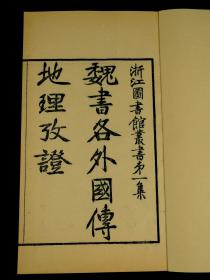 浙江圖書館叢書第一集
魏書各外國傳
地理攷證